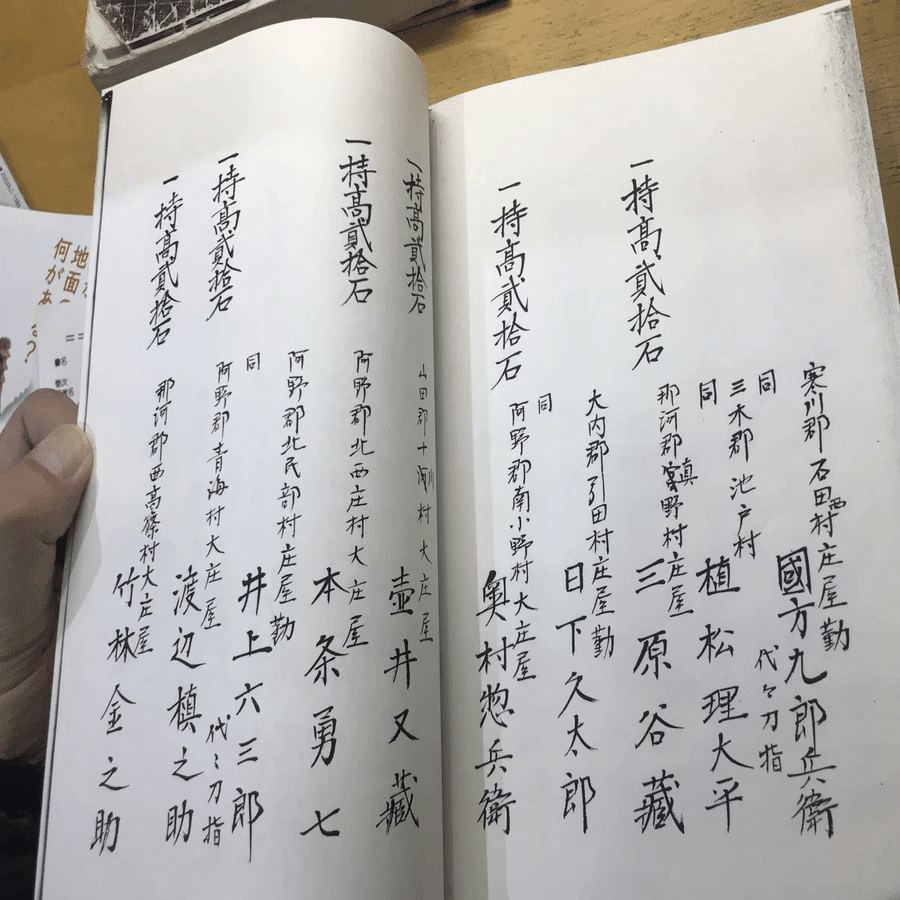 寒川郡石田西村庄屋勤
國方九郎兵衛
同
代々刀指
三木郡池戸村
植松理大平
一持高貳拾石
同
那河郡真野村庄屋
三原谷藏
大内郡引田村庄屋勤
日下久太郎
一持高貳拾石
同
阿野郡南小野村大庄屋
奥村惣兵衛
一持高貳拾石
山田郡十河村大庄屋
壺井又藏
一持高貳拾石
阿野郡北西庄村大庄屋
本条勇七
阿野郡北氏部村庄屋勤
井上六三郎
一持高貳拾石
同
代々刀指
阿野郡青海村大庄屋
渡辺槙之助
一持高貳拾石
那河郡西高篠村大庄屋
竹林金之助
地面
何が
あ
？
書名